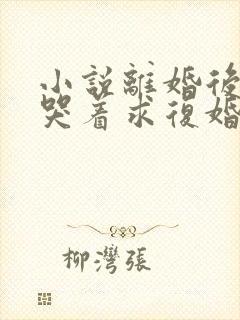 小説離婚後
哭着求復婚
柳灣張